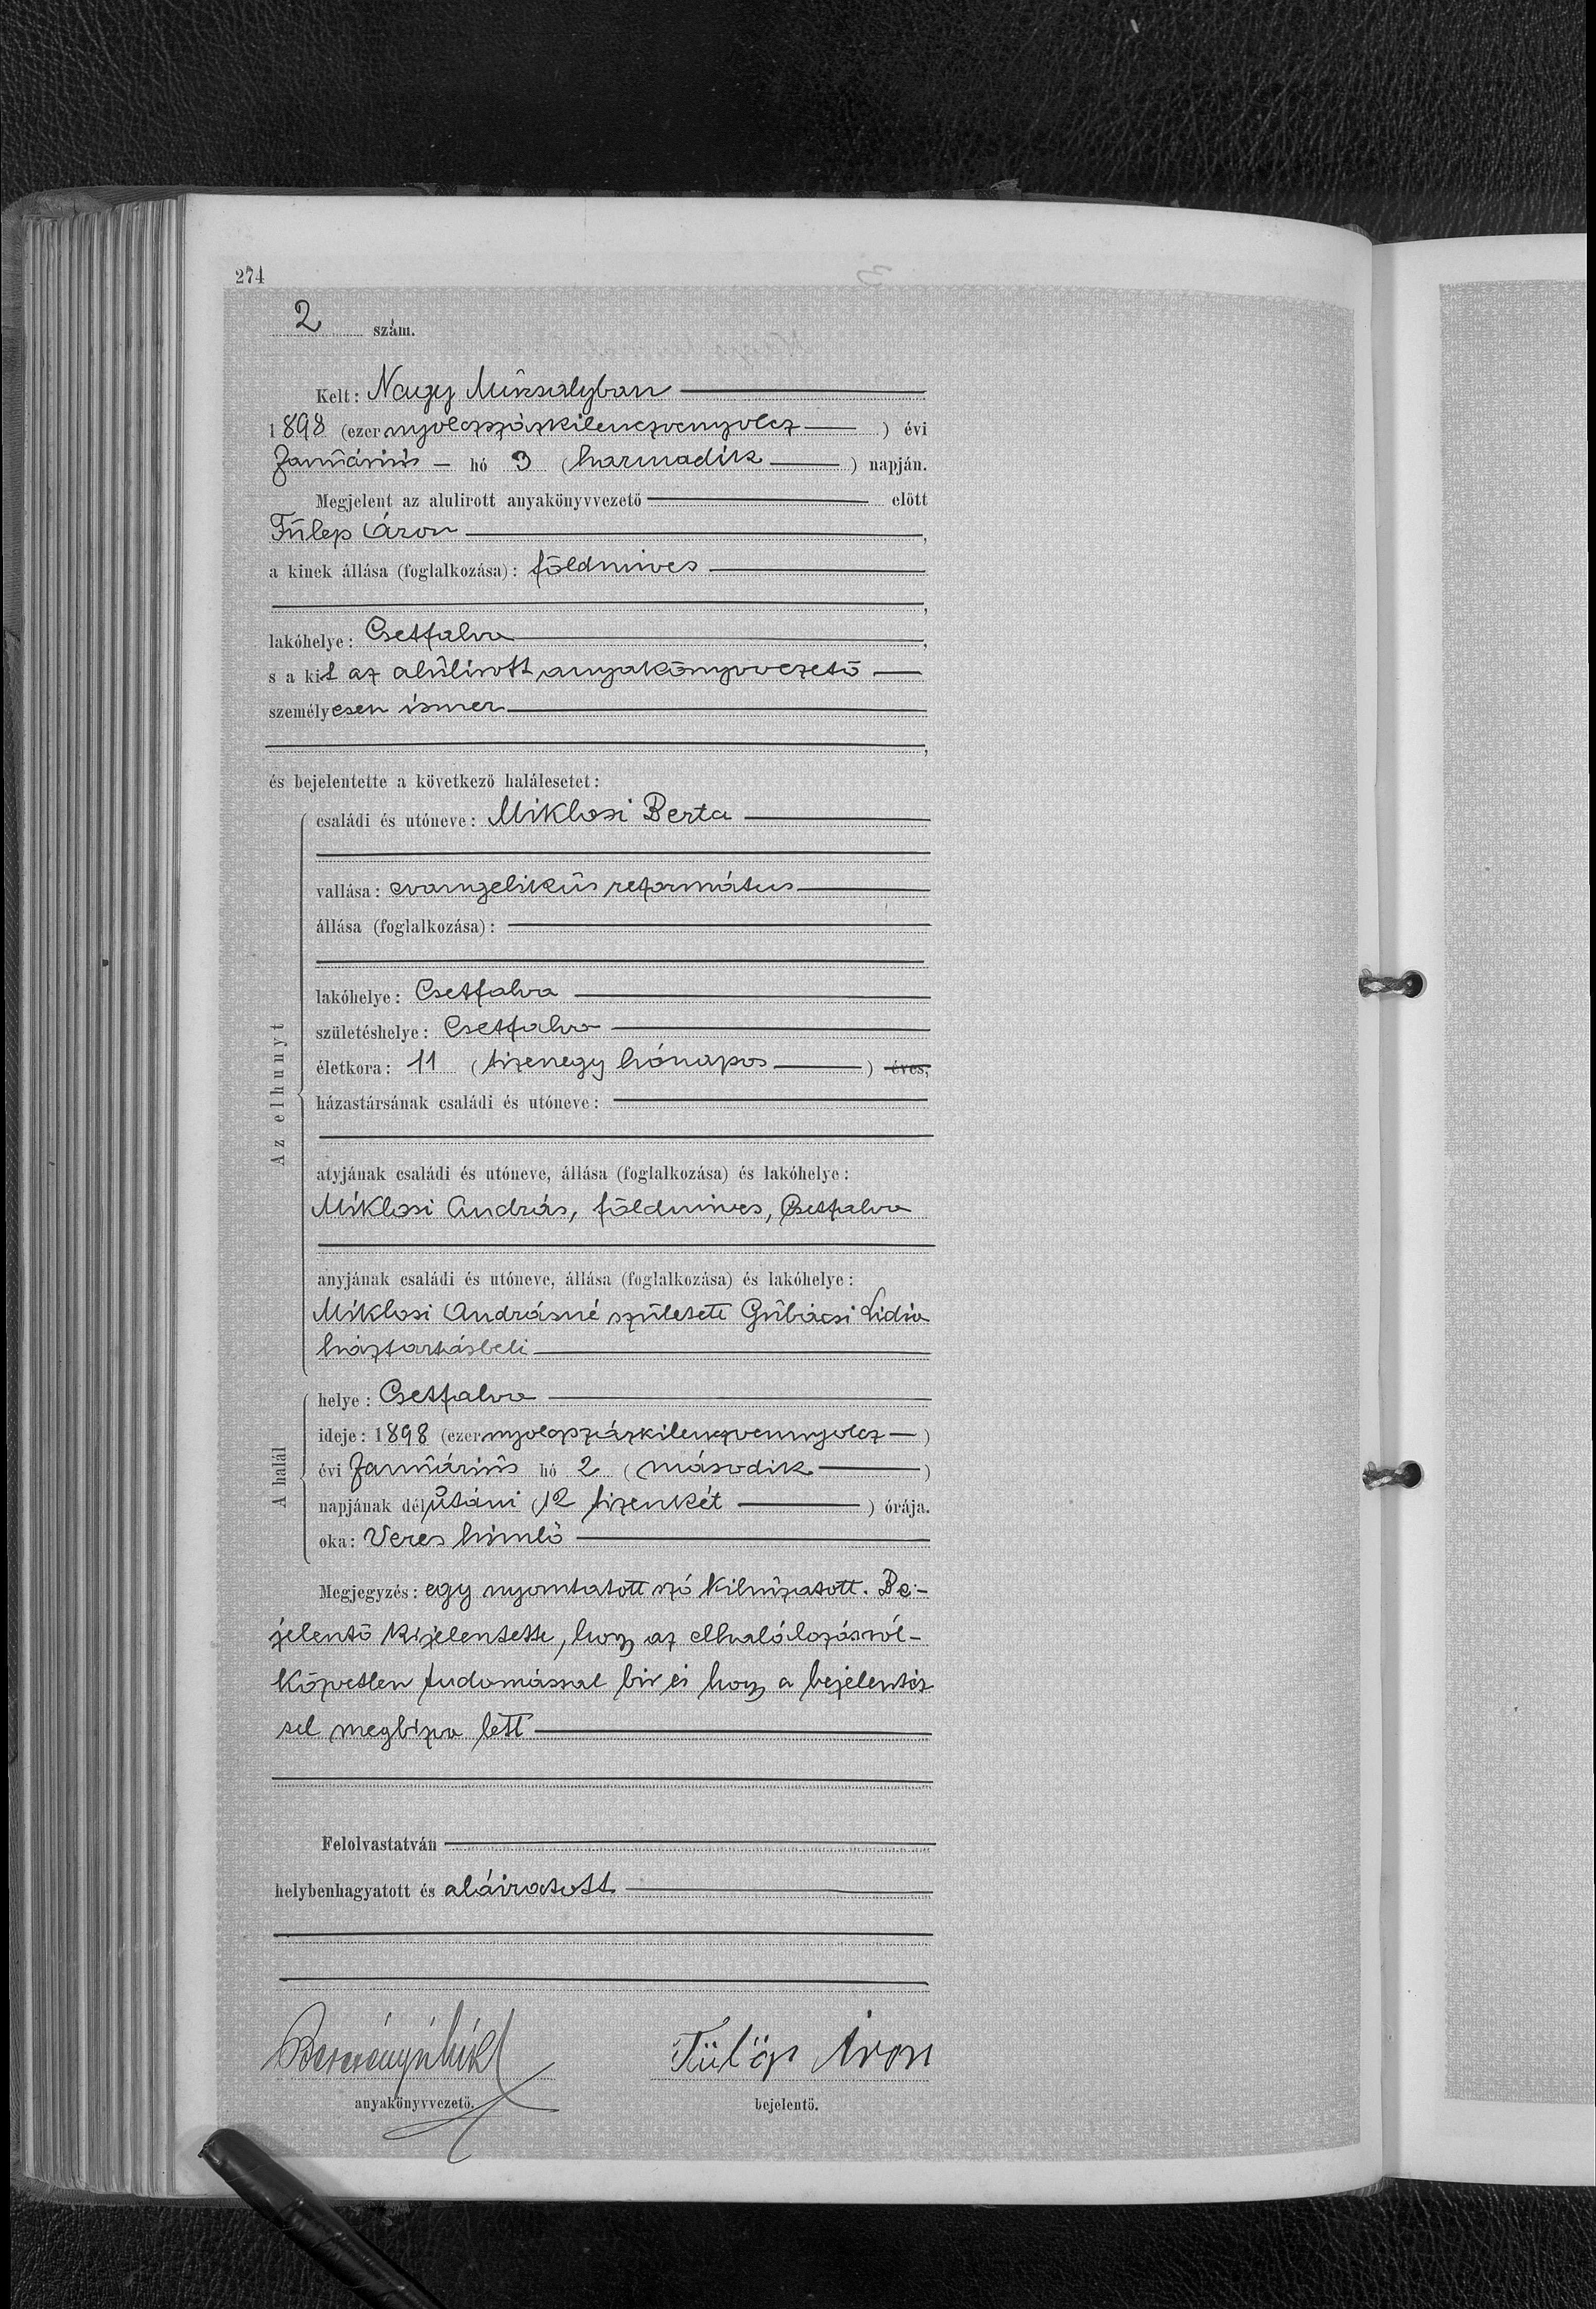 274
2 szám.
Kelt: Nagy Muzsalyban
1898 (ezer nyolczszázkilenczvennyolcz ) évi
Januárius hó 3 (harmadik ) napján.
Megjelent az alulirott anyakönyvvezető előtt
Fülep Áron,
a kinek állása (foglalkozása): földmives
,
lakóhelye: Csetfalva,
s a kit az alúlirott anyakönyvvezető
személyesen ismer
,
és bejelentette a következő halálesetet:
Az elhunyt
családi és utóneve: Miklosi Berta
vallása: evangelikus református
állása (foglalkozása):
lakóhelye: Csetfalva
születéshelye: Csetfalva
életkora: 11 (tizenegy hónapos ) éves,
házastársának családi és utóneve:
atyjának családi és utóneve, állása (foglalkozása) és lakóhelye:
Miklosi András, földmives, Csetfalva
anyjának családi és utóneve, állása (foglalkozása) és lakóhelye:
Miklosi Andrásné született Gubácsi Lidia
háztartásbeli
A halál
helye: Csetfalva
ideje: 1898 (ezer nyolczszázkilenczvennyolcz )
évi Januárius hó 2 (második )
napjának délutáni (12 tizenkét ) órája.
oka: Veres himlő
Megjegyzés: egy nyomtatott szó kihúzatott. Be-
jelentő kijelentette, hogy az elhalálozásról-
közvetlen tudomással bir és hogy a bejelentés
sel megbizva lett
Felolvastatván
helybenhagyatott és aláiratott
Fülöp Áron
anyakönyvvezető. bejelentő.